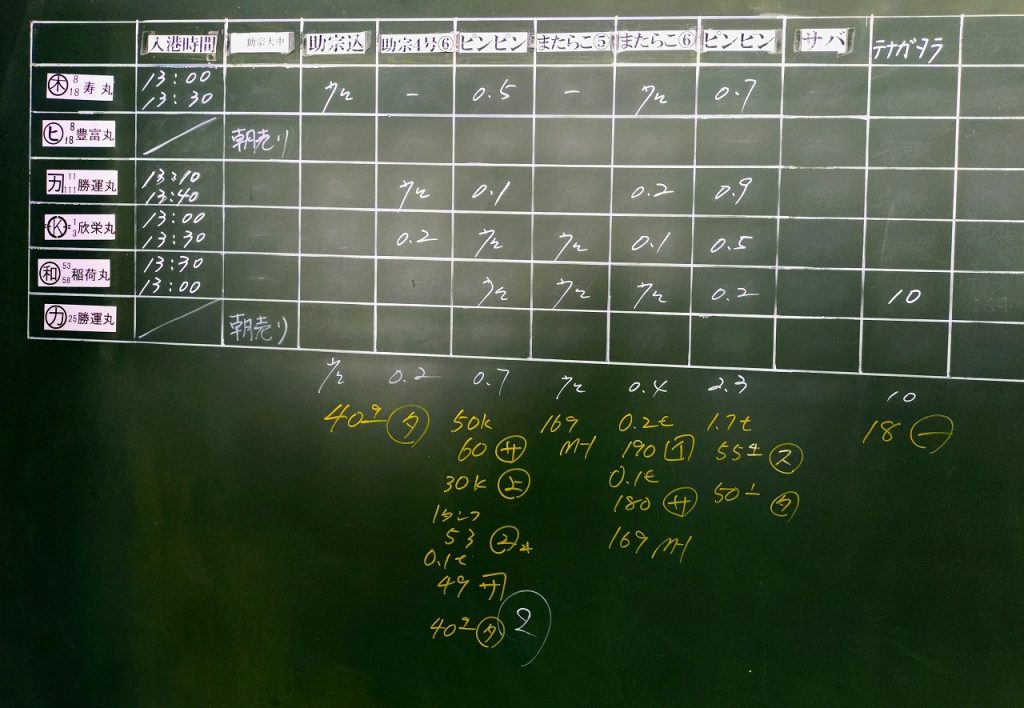 入港時間 助宗大中 助宗込 助宗4号⑥ ピンピン またらこ⑤ またらこ⑥ ピンピン サバ テナガダラ
㊍ 8 18 寿丸 13:00 13:30 ウセ - 0.5 - ウセ 0.7
ヒ 8 18 豊富丸 朝売り
カ 11 111 勝運丸 13:10 13:40 ウセ 0.1 0.2 0.9
K 1 3 欣栄丸 13:00 13:30 0.2 ウセ ウセ 0.1 0.5
和 53 58 稲荷丸 13:30 13:00 ウセ ウセ ウセ 0.2 10
カ 25 勝運丸 朝売り
ウセ 0.2 0.7 ウセ 0.4 2.3 10
40 タ 50k 169 0.2t 1.7t 18 一
60 サ 190 55 ス
30k 0.1t
180 サ 50 タ
53 169
0.1t
49 サ
40 タ 2